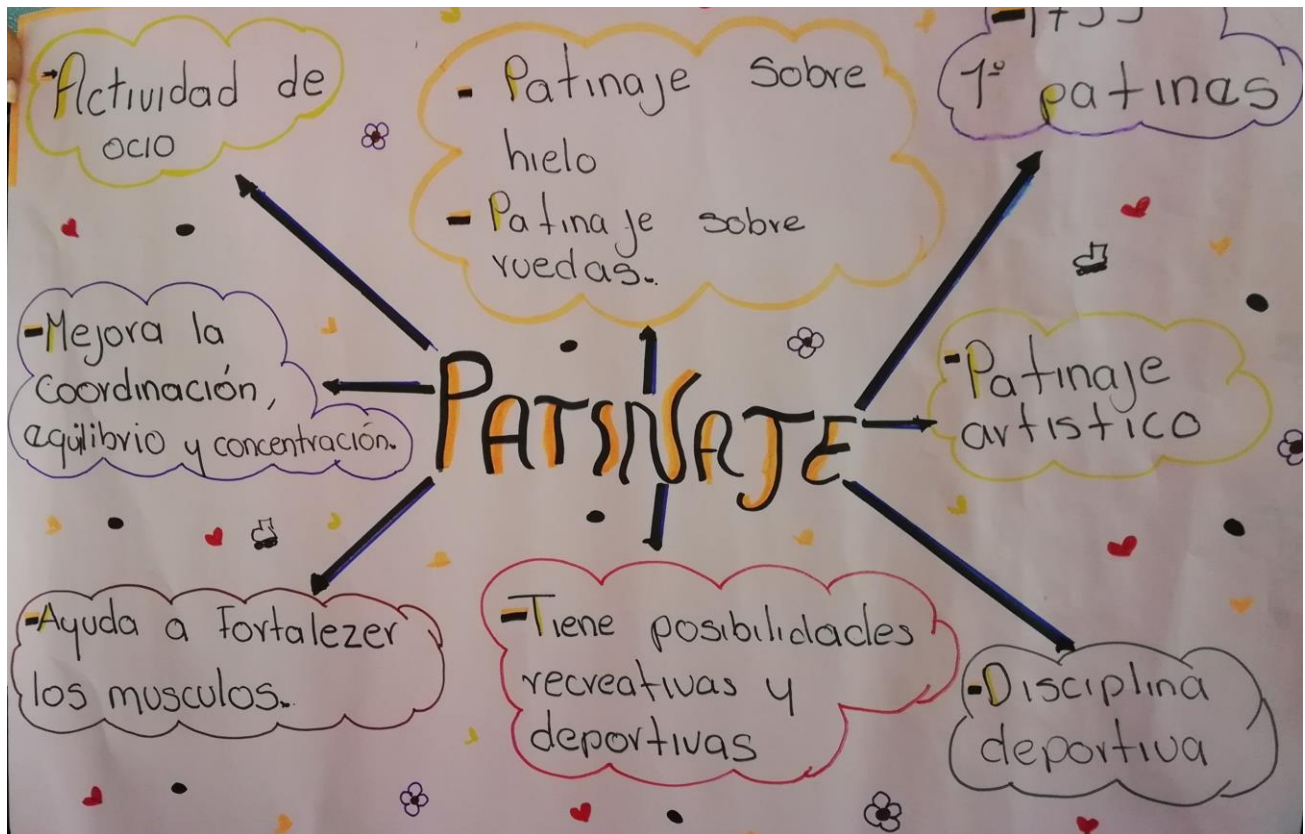 -Actividad de
ocio
- Patinaje sobre
hielo
- Patinaje sobre
ruedas.
1º patinas
-Mejora la
coordinación,
equilibrio y concentración.
PATINAJE
-Patinaje
artistico
-Ayuda a Fortalezer
los musculos.
-Tiene posibilidades
recreativas y
deportivas
-Disciplina
deportiva